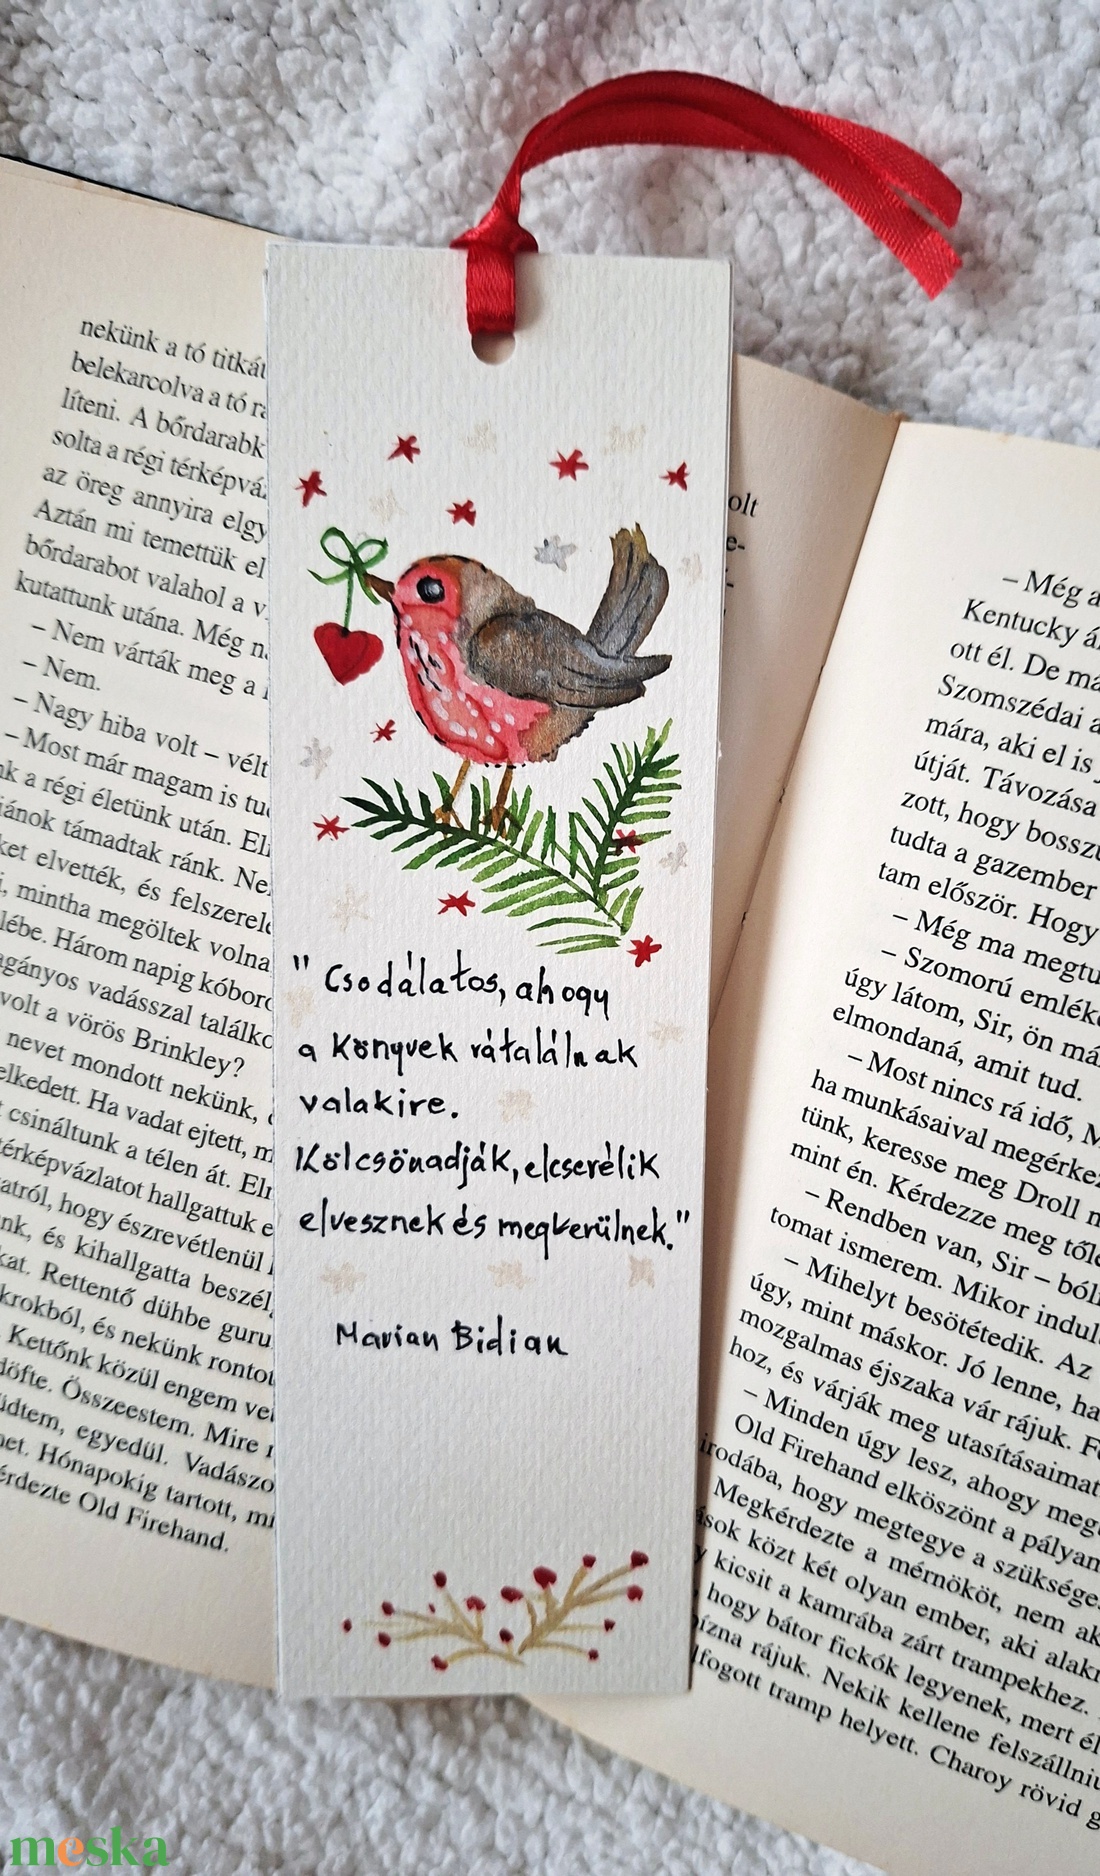 nekünk a tó titkát
belekarcolva a tó ra
líteni. A bőrdarabk
solta a régi térképváz
az öreg annyira elgy
Aztán mi temettük el
bőrdarabot valahol a v
kutattunk utána. Még n
– Nem várták meg a
– Nem.
– Nagy hiba volt – vélt
– Most már magam is tu
nk a régi életünk után. Eli
iánok támadtak ránk. Ne
ket elvették, és felszerel
i, mintha megöltek volna
lébe. Három napig kóboro
agányos vadásszal találko
volt a vörös Brinkley?
nevet mondott nekünk,
elkedett. Ha vadat ejtett, m
t csináltunk a télen át. Elr
térképvázlatot hallgattuk e
atról, hogy észrevétlenül
nk, és kihallgatta beszél
kat. Rettentő dühbe guru
krokból, és nekünk rontot
Kettőnk közül engem ve
döfte. Összeestem. Mire
üdtem, egyedül. Vadászo
net. Hónapokig tartott, mi
érdezte Old Firehand.
" Csodálatos, ahogy
a könyvek rátalálnak
valakire.
Kölcsönadják, elcserélik
elvesznek és megkerülnek."
Marian Bidian
olt
e-
– Még a
Kentucky ál
ott él. De má
Szomszédai a
mára, aki el is
útját. Távozása
zott, hogy bosszu
tudta a gazember
tam először. Hogy
– Még ma megtu
– Szomorú emléke
úgy látom, Sir, ön má
elmondaná, amit tud.
– Most nincs rá idő, M
ha munkásaival megérkez
tünk, keresse meg Droll n
mint én. Kérdezze meg tőle
– Rendben van, Sir – bóli
tomat ismerem. Mikor indul
– Mihelyt besötétedik. Az
úgy, mint máskor. Jó lenne, ha
mozgalmas éjszaka vár rájuk. F
hoz, és várják meg utasításaimat
– Minden úgy lesz, ahogy meg
Old Firehand elköszönt a pályam
irodába, hogy megtegye a szüksége
Megkérdezte a mérnököt, nem ak
ások közt két olyan ember, aki alakr
y kicsit a kamrába zárt trampekhez.
hogy bátor fickók legyenek, mert él
bízna rájuk. Nekik kellene felszállniu
lfogott tramp helyett. Charoy rövid g
meska